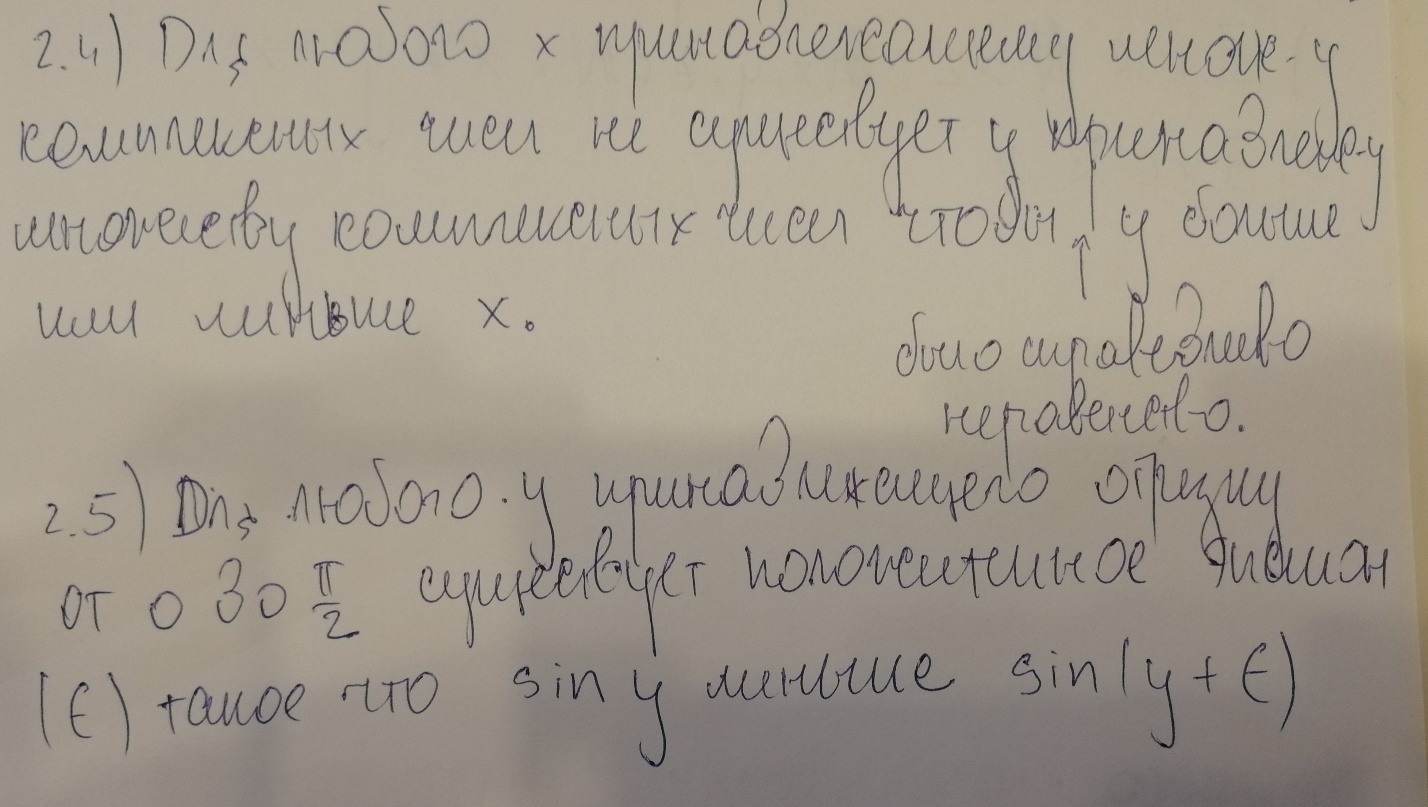 2.4) Для любого x принадлежащему множ-у
комплексных чисел не существует y принадлеж-у
множеству комплексных чисел чтобы ↑ y больше
или меньше x.
было справедливо
неравенство.
2.5) Для любого y принадлежащего отрезку
от 0 до π/2 существует положительное эпсилон
(ϵ) такое что sin y меньше sin(y + ϵ)